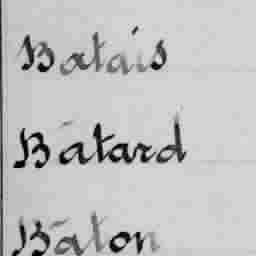 Batais
Bâtard
Bâton